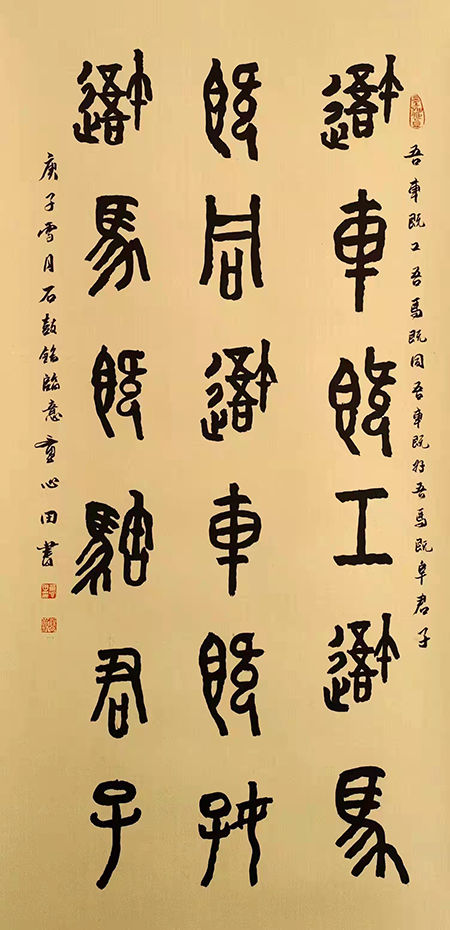 吾車既工吾馬既同吾車既好吾馬既阜君子
吾車既工吾馬
既同吾車既好
吾馬既君子
庚子雪月石鼓銘臨意心田書